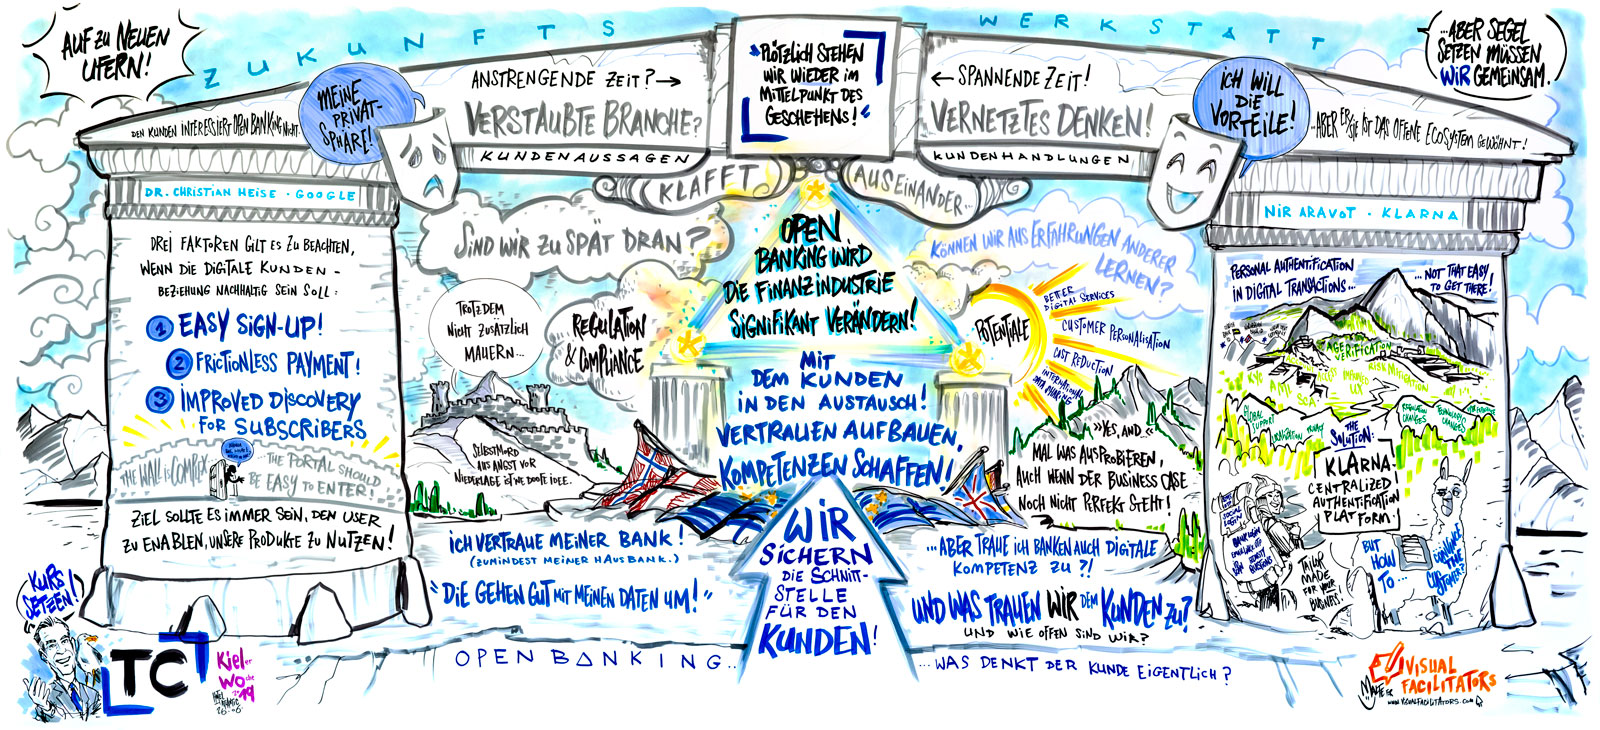 AUF ZU NEUEN
UFERN!
ZUKUNFTS
WERKSTATT
...ABER SEGEL
SETZEN MÜSSEN
WIR GEMEINSAM.
DEN KUNDEN INTERESSIERT OPEN BANKING NICHT...
MEINE
PRIVAT-
SPHÄRE!
ANSTRENGENDE ZEIT? →
VERSTAUBTE BRANCHE?
KUNDENAUSSAGEN
"PLÖTZLICH STEHEN
WIR WIEDER IM
MITTELPUNKT DES
GESCHEHENS!"
← SPANNENDE ZEIT!
VERNETZTES DENKEN!
KUNDENHANDLUNGEN
ICH WILL
DIE
VORTEILE!
...ABER ER/SIE IST DAS OFFENE ECOSYSTEM GEWÖHNT!
KLAFFT
AUSEINANDER...
DR. CHRISTIAN HEISE · GOOGLE
DREI FAKTOREN GILT ES ZU BEACHTEN,
WENN DIE DIGITALE KUNDEN-
BEZIEHUNG NACHHALTIG SEIN SOLL:
1 EASY SIGN-UP!
2 FRICTIONLESS PAYMENT!
3 IMPROVED DISCOVERY
FOR SUBSCRIBERS
THE WALL IS COMPLEX
... THE PORTAL SHOULD
BE EASY TO ENTER!
ZIEL SOLLTE ES IMMER SEIN, DEN USER
ZU ENABLEN, UNSERE PRODUKTE ZU NUTZEN!
SIND WIR ZU SPÄT DRAN?
TROTZDEM
NICHT ZUSÄTZLICH
MAUERN...
REGULATION
& COMPLIANCE
SELBSTMORD
AUS ANGST VOR
NIEDERLAGE IST 'NE DOOFE IDEE.
OPEN
BANKING WIRD
DIE FINANZINDUSTRIE
SIGNIFIKANT VERÄNDERN!
MIT
DEM KUNDEN
IN DEN AUSTAUSCH!
VERTRAUEN AUFBAUEN,
KOMPETENZEN SCHAFFEN!
WIR
SICHERN
DIE SCHNITT-
STELLE
FÜR DEN
KUNDEN!
KÖNNEN WIR AUS ERFAHRUNGEN ANDERER
LERNEN?
POTENTIALE
BETTER
DIGITAL SERVICES
CUSTOMER PERSONALISATION
COST REDUCTION
INTERNATIONAL
DATA SHARING
"YES, AND..."
MAL WAS AUSPROBIEREN,
AUCH WENN DER BUSINESS CASE
NOCH NICHT PERFEKT STEHT!
ICH VERTRAUE MEINER BANK!
(ZUMINDEST MEINER HAUSBANK.)
"DIE GEHEN GUT MIT MEINEN DATEN UM!"
...ABER TRAUE ICH BANKEN AUCH DIGITALE
KOMPETENZ ZU?!
UND WAS TRAUEN WIR DEM KUNDEN ZU?
UND WIE OFFEN SIND WIR?
NIR ARAVOT · KLARNA
PERSONAL AUTHENTIFICATION
IN DIGITAL TRANSACTIONS...
... NOT THAT EASY
TO GET THERE!
AGE VERIFICATION
RISK MITIGATION
KYC
AML
SCA
ACCESS
IMPROVED
UX
GLOBAL
SUPPORT
REGULATION
CHANGES
TECHNOLOGY
CHANGES
THE
SOLUTION:
KLARNA
CENTRALIZED
AUTHENTIFICATION
PLATFORM!
SOCIAL
LOGIN
TAILOR
MADE
FOR YOUR
BUSINESS.
BUT
HOW
TO...
CONVINCE
THE
CUSTOMER?
KURS
SETZEN!
TC
Kieler
WOche
2019
OPEN BANKING...
...WAS DENKT DER KUNDE EIGENTLICH?
VISUAL
FACILITATORS
WWW.VISUALFACILITATORS.COM